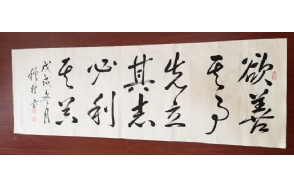 欲善
其事
先立
其志
必利
其器
戊戌冬月
书